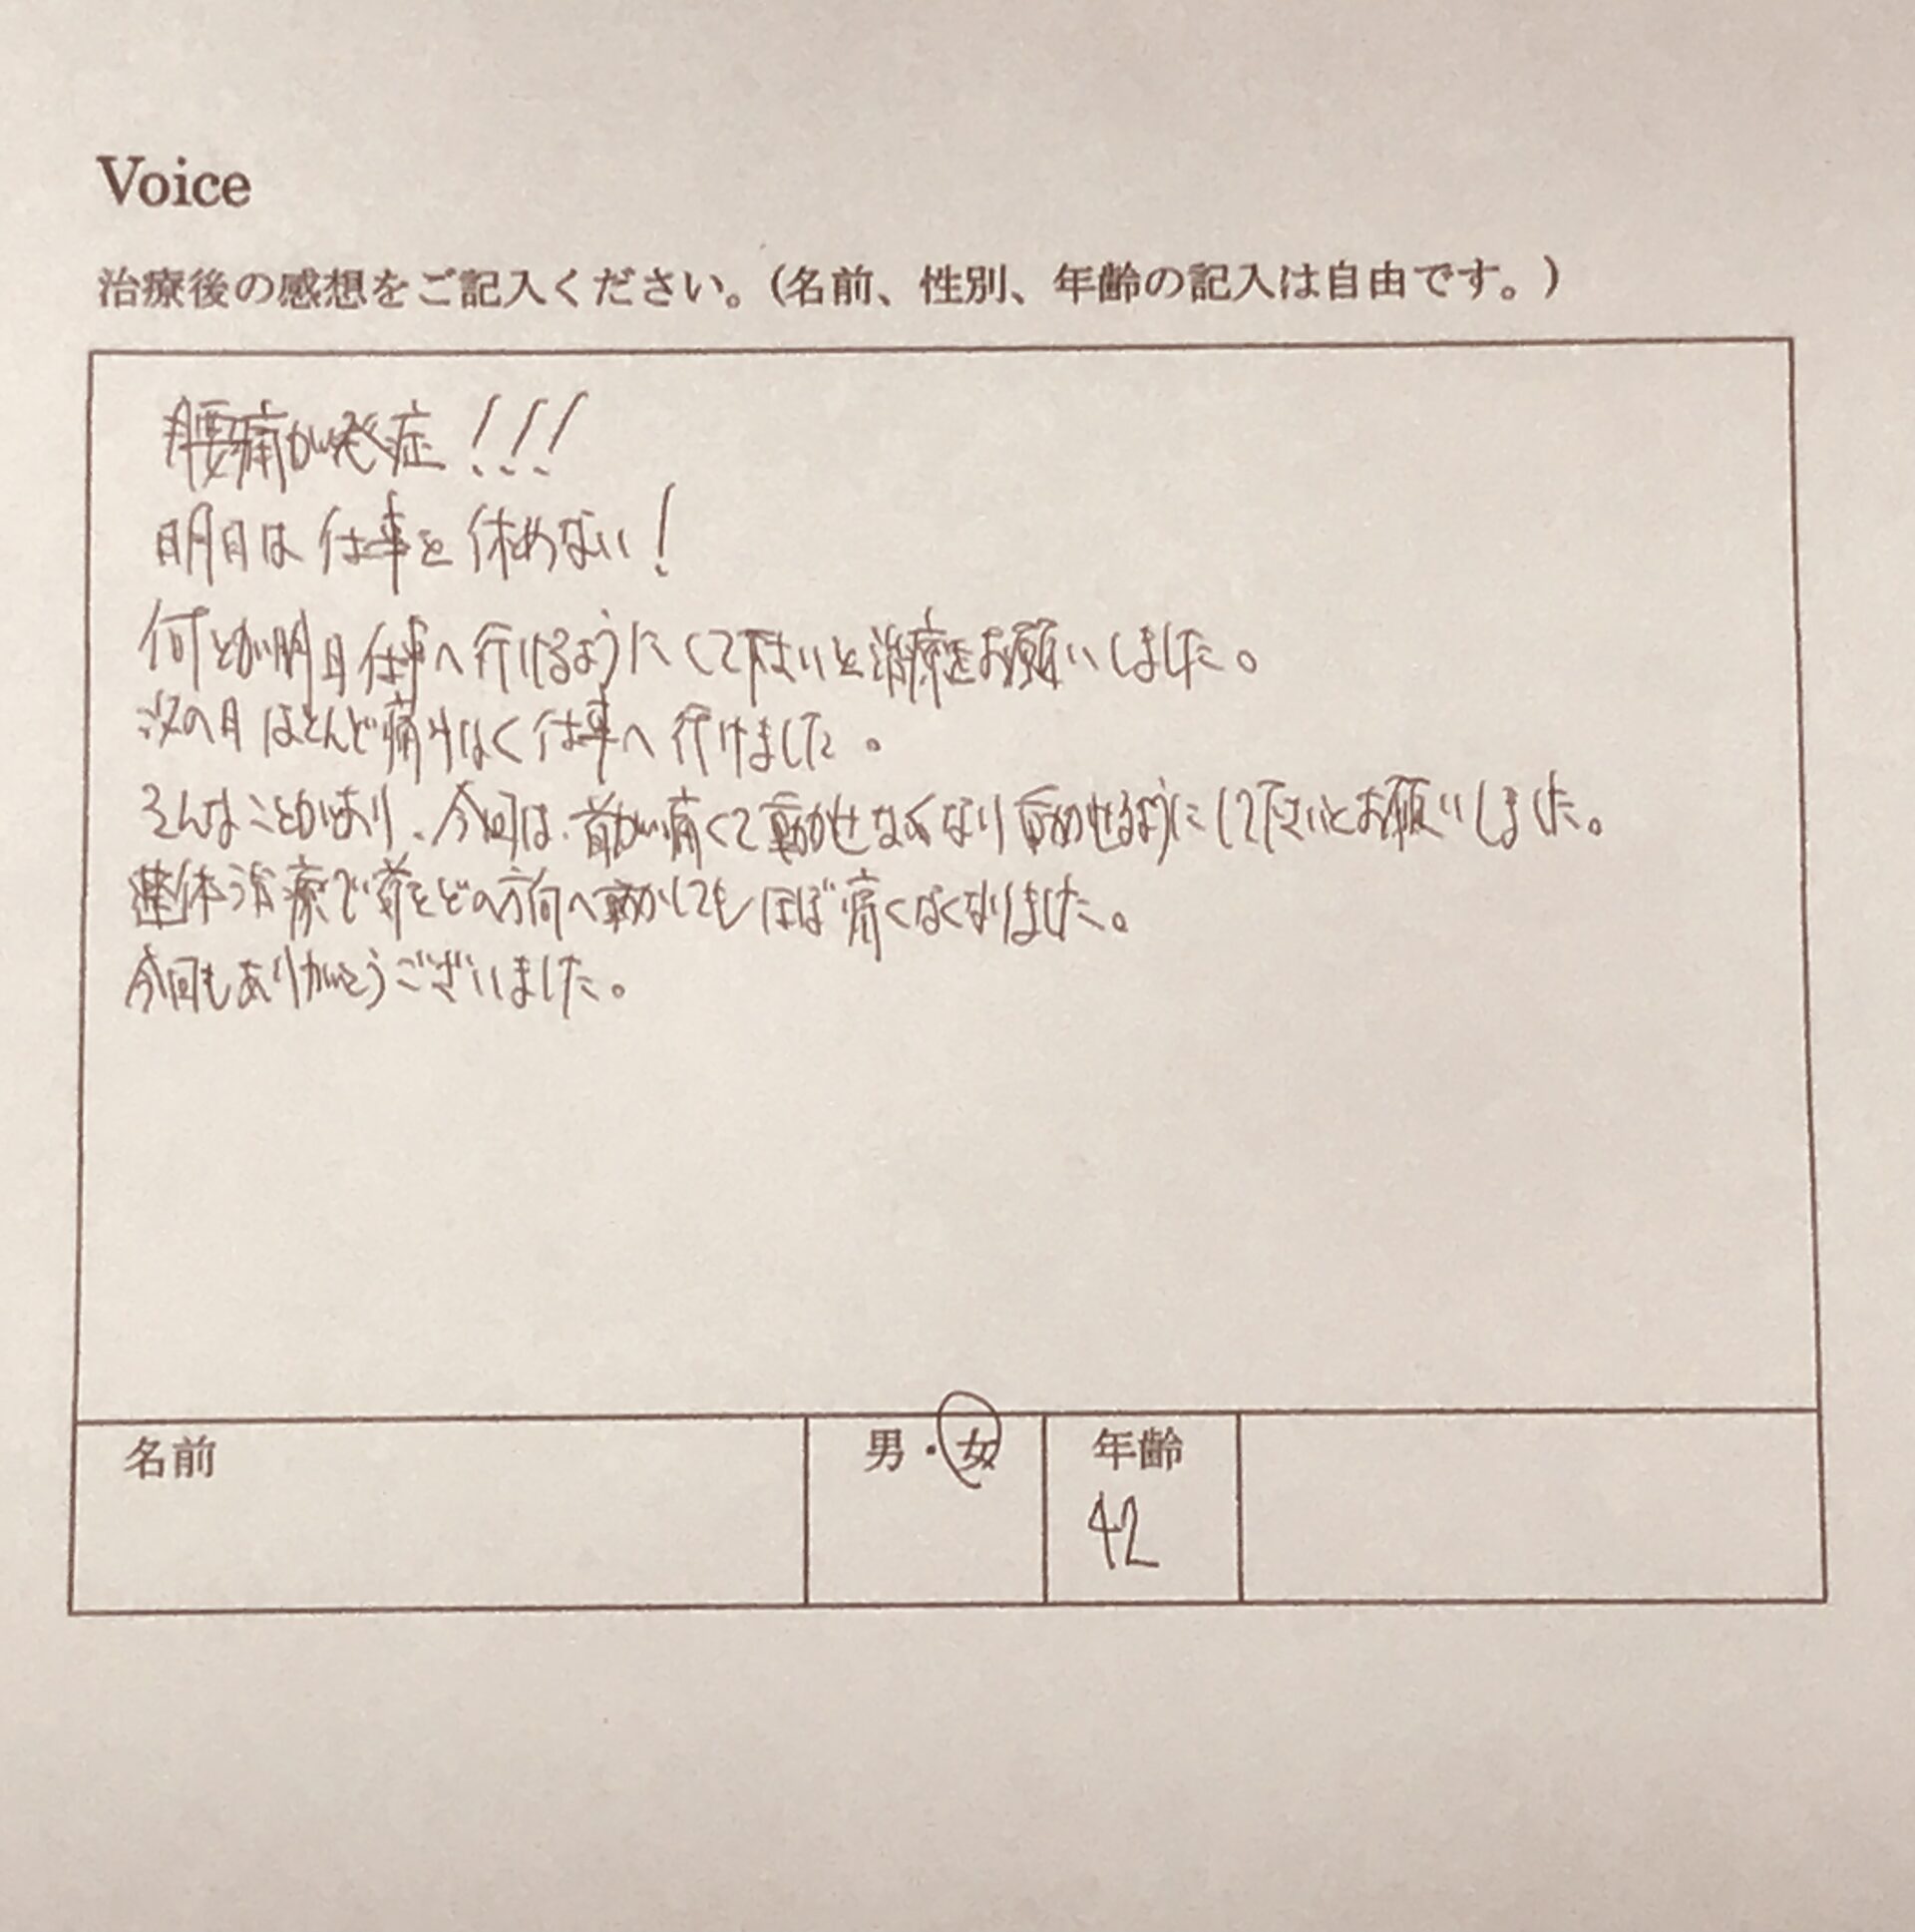 Voice
治療後の感想をご記入ください。(名前、性別、年齢の記入は自由です。)
腰痛が発症!!!
明日は仕事を休めない!
何とか明日仕事へ行けるようにして下さいと治療をお願いしました。
次の日ほとんど痛みなく仕事へ行けました。
そんなことがあり、今回は、首が痛くて動かせなくなり動かせるようにして下さいとお願いしました。
整体治療で首をどの方向へ動かしてもほぼ痛くなくなりました。
今回もありがとうございました。
名前 男・女 年齢
42